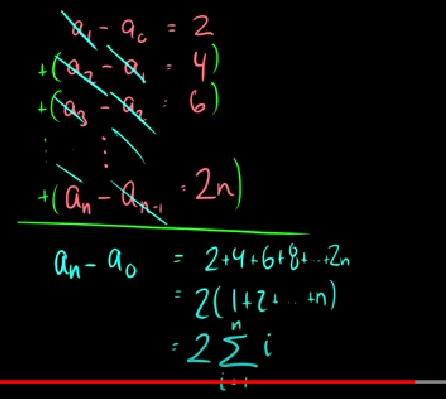 a₁ - a₀ = 2
+(a₂ - a₁ = 4)
+(a₃ - a₂ = 6)
⋮ ⋮
+(aₙ - aₙ₋₁ = 2n)
aₙ - a₀ = 2+4+6+8+...2n
= 2(1+2+...+n)
n
= 2 Σ i